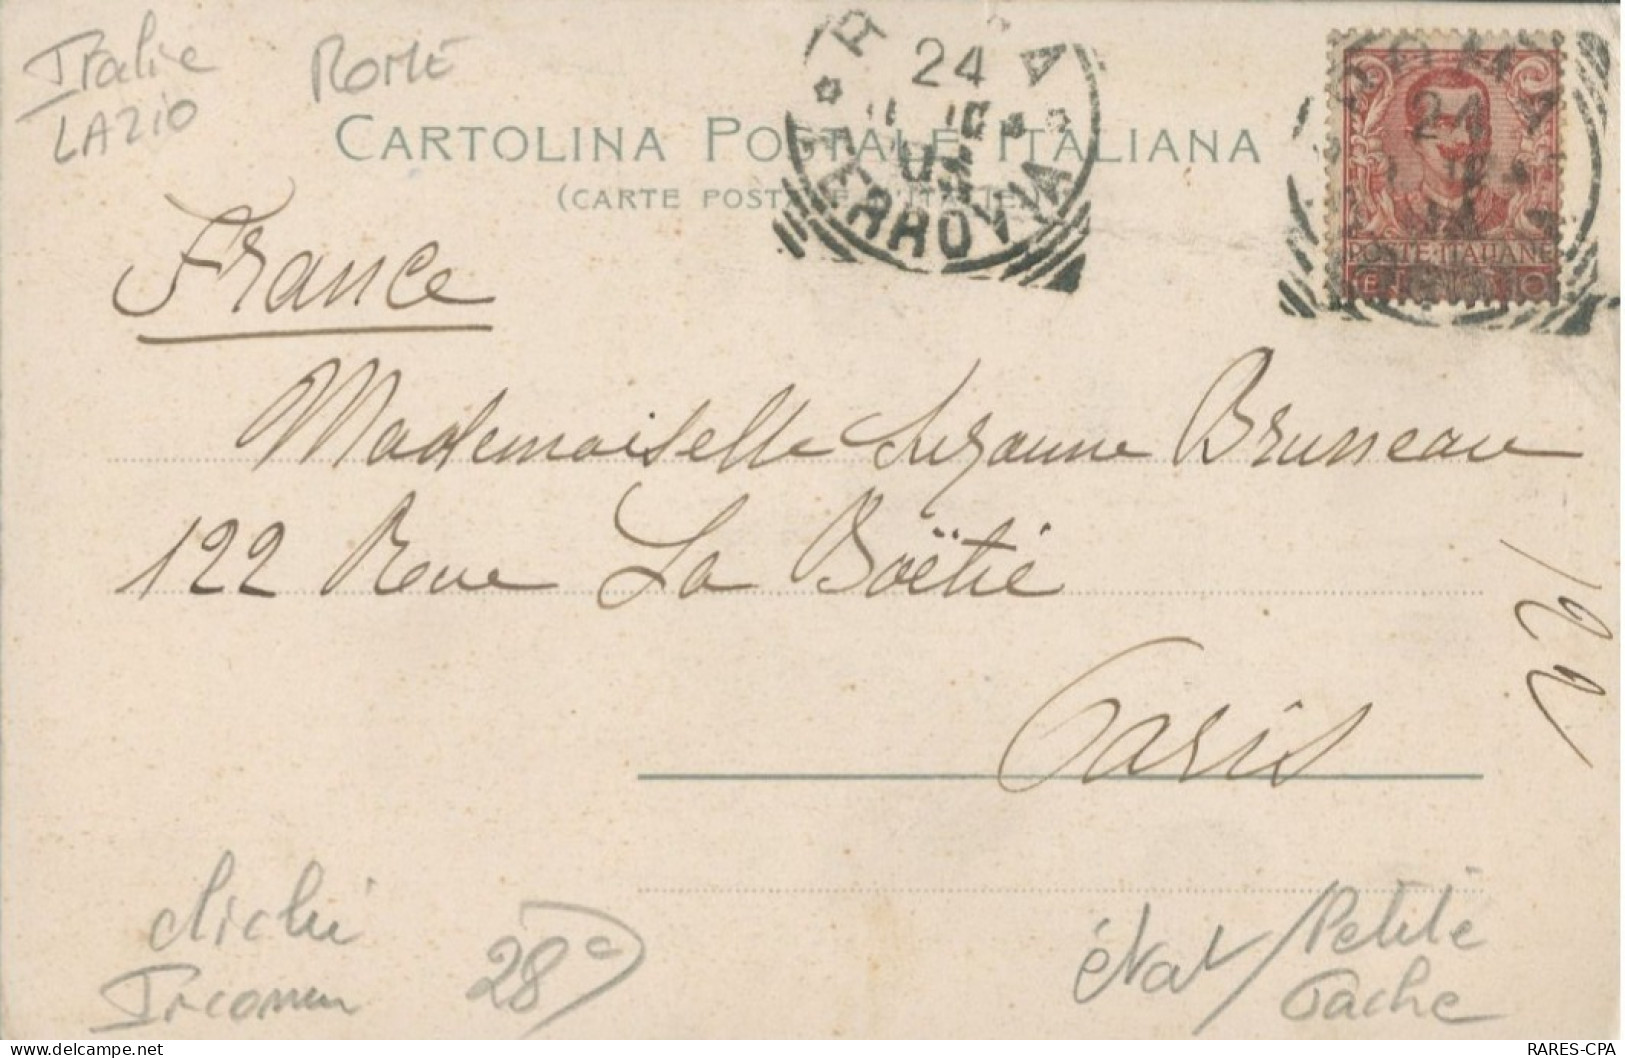 Italie
LAZIO
ROME
24
FERROVIA
CARTOLINA POSTALE ITALIANA
(CARTE POSTALE D'ITALIE)
24
POSTE·ITALIANE
France
Mademoiselle Suzanne Brusseau
122 Rue La Boëtie
Paris
122
cliché
Inconnu
28€
état / Petite
Tache
RARES-CPA